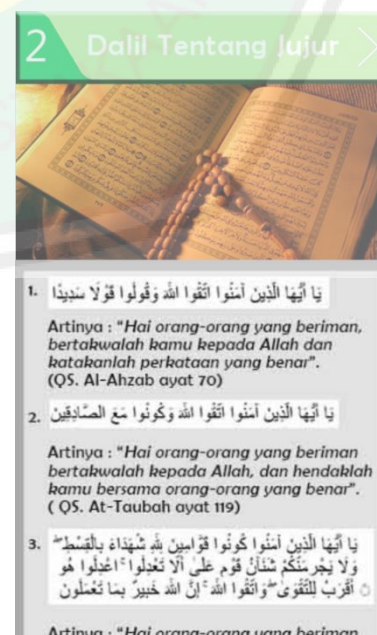 2 Dalil Tentang Jujur
1. يَا أَيُّهَا الَّذِينَ آمَنُوا اتَّقُوا اللَّهَ وَقُولُوا قَوْلًا سَدِيدًا
Artinya : "Hai orang-orang yang beriman,
bertakwalah kamu kepada Allah dan
katakanlah perkataan yang benar".
(QS. Al-Ahzab ayat 70)
2. يَا أَيُّهَا الَّذِينَ آمَنُوا اتَّقُوا اللَّهَ وَكُونُوا مَعَ الصَّادِقِينَ
Artinya : "Hai orang-orang yang beriman
bertakwalah kepada Allah, dan hendaklah
kamu bersama orang-orang yang benar".
( QS. At-Taubah ayat 119)
3. يَا أَيُّهَا الَّذِينَ آمَنُوا كُونُوا قَوَّامِينَ لِلَّهِ شُهَدَاءَ بِالْقِسْطِ ۖ
وَلَا يَجْرِمَنَّكُمْ شَنَآنُ قَوْمٍ عَلَىٰ أَلَّا تَعْدِلُوا ۚ اعْدِلُوا هُوَ
أَقْرَبُ لِلتَّقْوَىٰ ۖ وَاتَّقُوا اللَّهَ ۚ إِنَّ اللَّهَ خَبِيرٌ بِمَا تَعْمَلُونَ
Artinya : "Hai orang-orang yang beriman